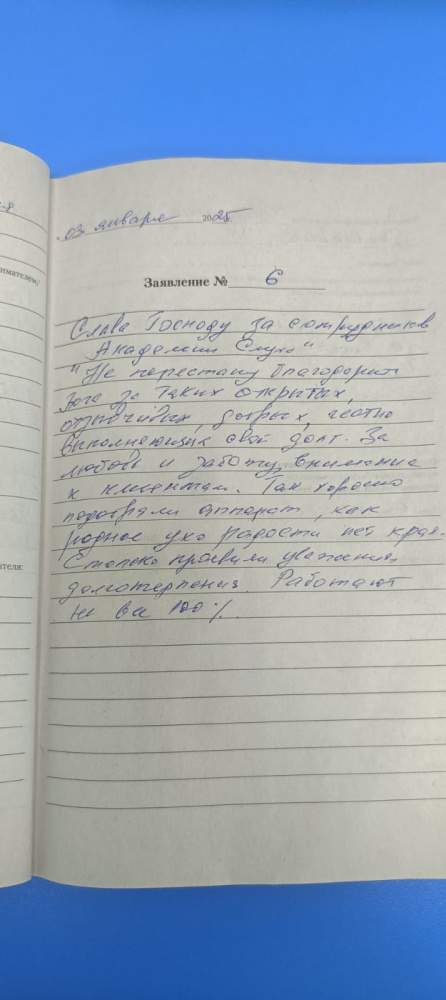 с.р
03 января 2025
нимателем/
Заявление № 6
Слава Господу за сотрудников
"Академии Слуха"
"Не перестану благодарить
Бога за таких открытых,
отзывчивых, добрых, честно
выполняющих свой долг. За
любовь и заботу, внимание
к клиентам. Так хорошо
подобрали аппарат, как
родное ухо радости нет края.
Столько проявили уважения,
долготерпения. Работают
на все 100%.
ателя: